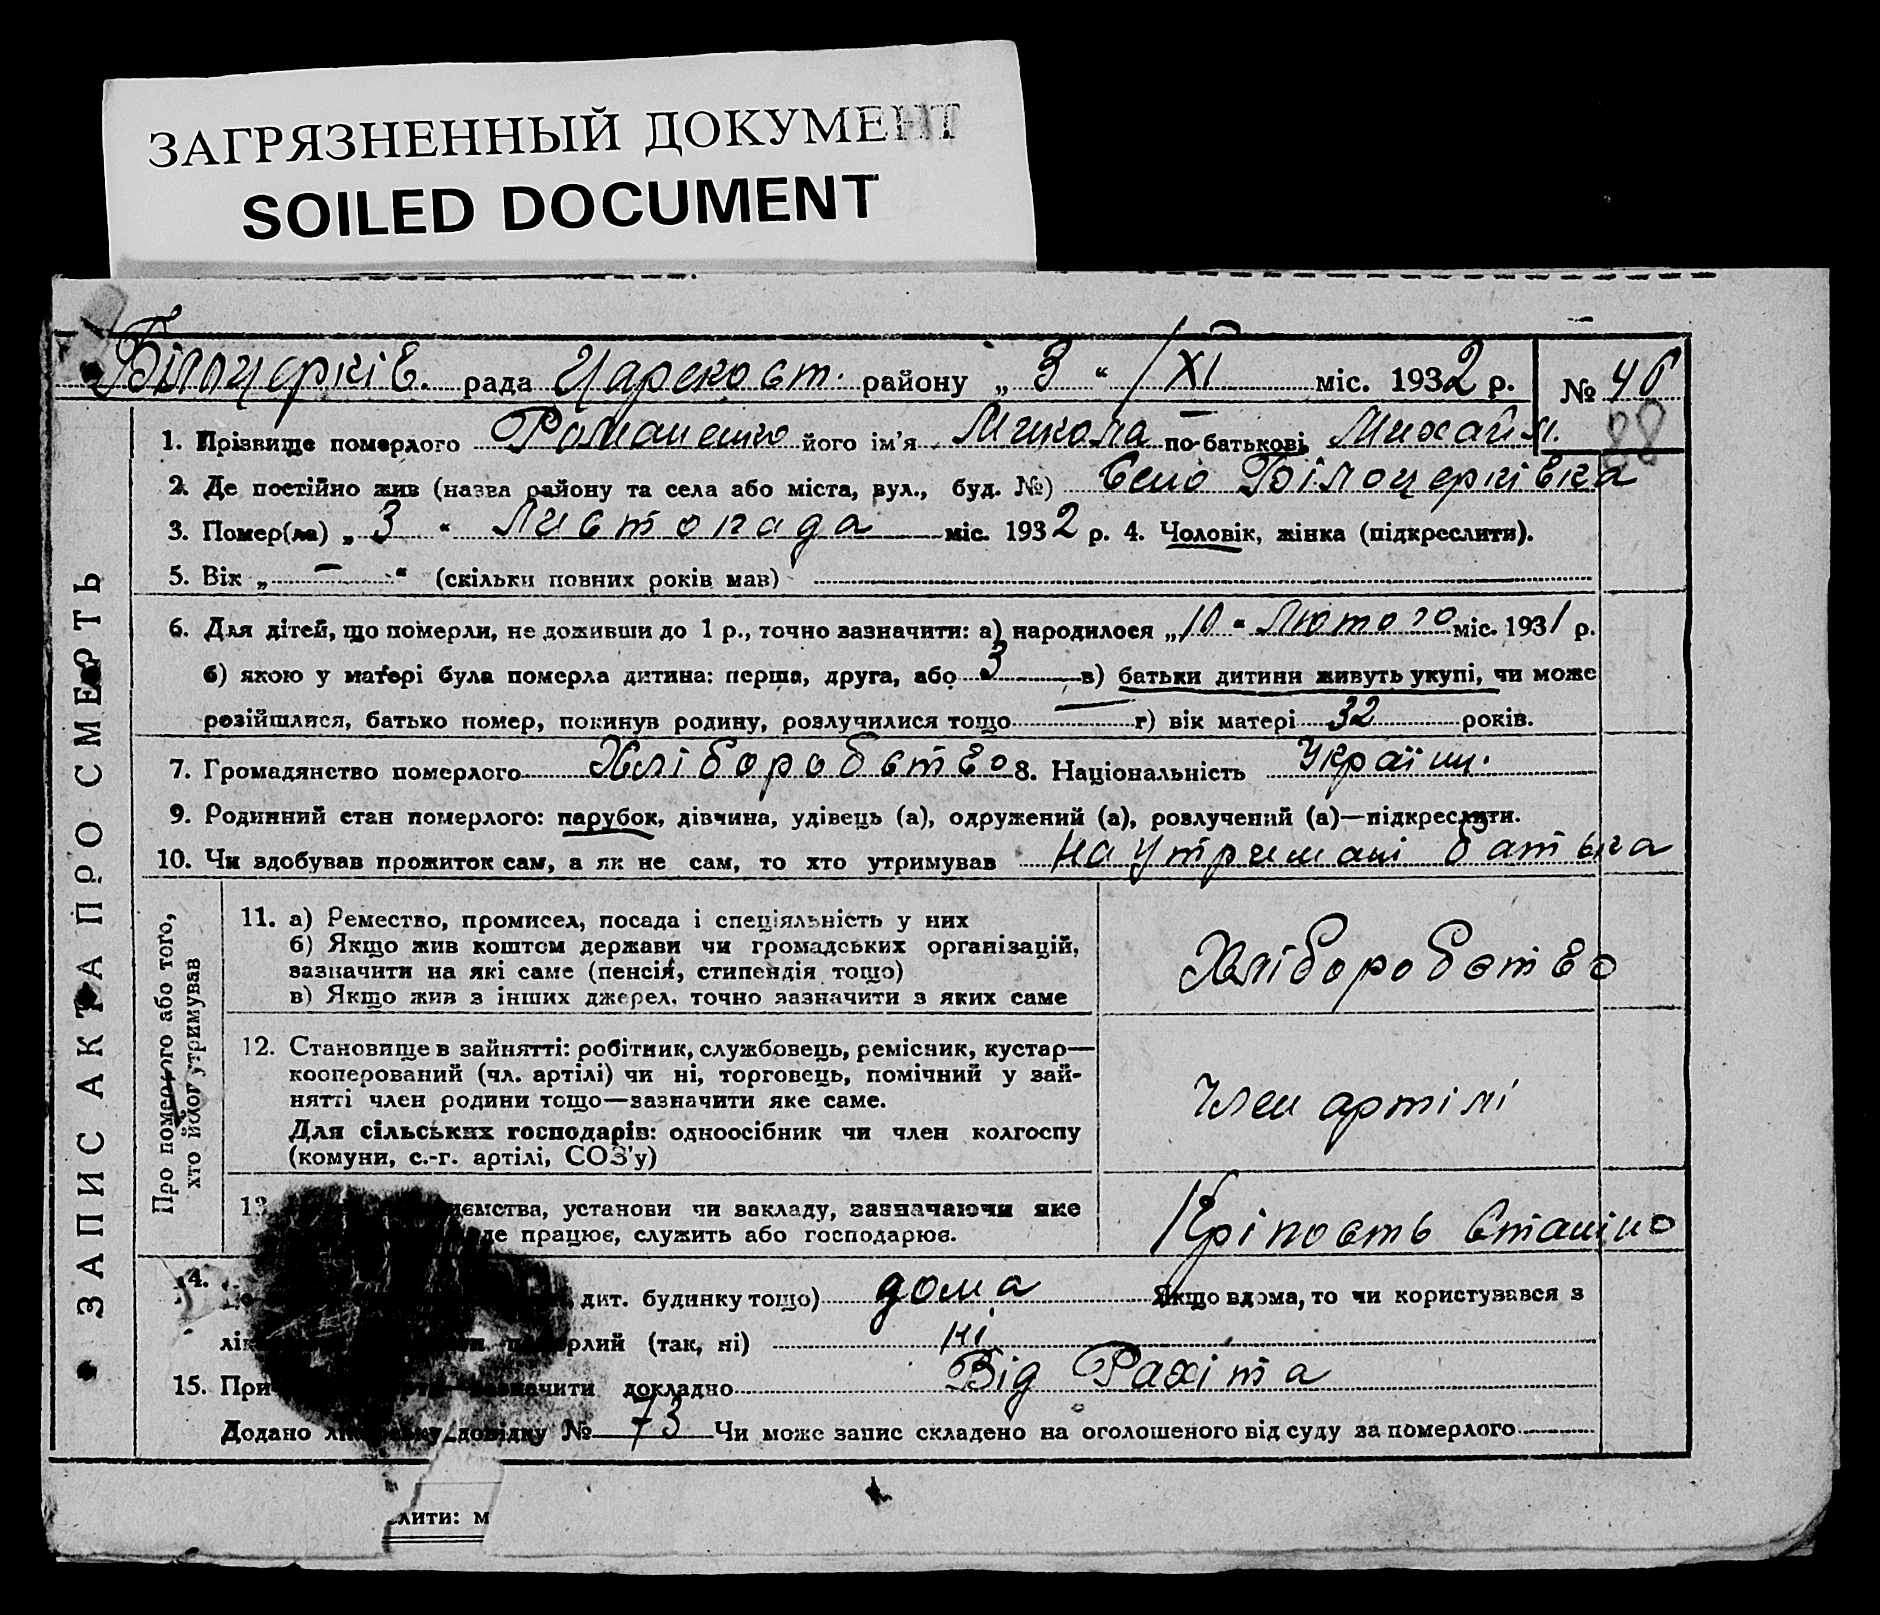 ЗАГРЯЗНЕННЫЙ ДОКУМЕНТ
SOILED DOCUMENT
Білоцерків. рада района „ 3 “ / XI міс. 1932 р. №
88
1. Прізвище померлого Романенко його ім’я Микола по-батькові Михайл.
2. Де постійно жив (назва району та села або міста, вул., буд. №) Село Білоцерківка
3. Помер(ла) „ 3 “ Листопада міс. 1932 р. 4. Чоловік, жінка (підкреслити).
5. Вік „ — “ (скільки повних років мав)
6. Для дітей, що померли, не доживши до 1 р., точно зазначити: а) народилося „10“ Лютого міс. 1931 р.
б) якою у матері була померла дитина: перша, друга, або 3 в) батьки дитини живуть укупі, чи може
розійшлися, батько помер, покинув родину, розлучилися тощо г) вік матері 32 років.
7. Громадянство померлого Хліборобство 8. Національність Україн.
9. Родинний стан померлого: парубок, дівчина, удівець (а), одружений (а), розлучений (а)—підкреслити.
10. Чи здобував прожиток сам, а як не сам, то хто утримував На утримані батька
ЗАПИС АКТА ПРО СМЕРТЬ
Про померлого або того,
хто його утримував
11. а) Ремество, промисел, посада і спеціяльність у них
б) Якщо жив коштом держави чи громадських організацій,
зазначити на які саме (пенсія, стипендія тощо)
в) Якщо жив з інших джерел, точно зазначити з яких саме
Хліборобство
12. Становище в зайнятті: робітник, службовець, ремісник, кустар—
кооперований (чл. артілі) чи ні, торговець, помічний у зай-
нятті член родини тощо—зазначити яке саме.
Для сільських господарів: одноосібник чи член колгоспу
(комуни, с.-г. артілі, СОЗ’у)
Член артілі
13. установи чи закладу, зазначаючи яке
де працює, служить або господарює.
Кріпость
14. дит. будинку тощо) дома Якщо вдома, то чи користувався з
(так, ні) ні
15. зазначити докладно Від Рахіта
Додано лікарську довідку № 73 Чи може запис складено на оголошеного від суду за померлого